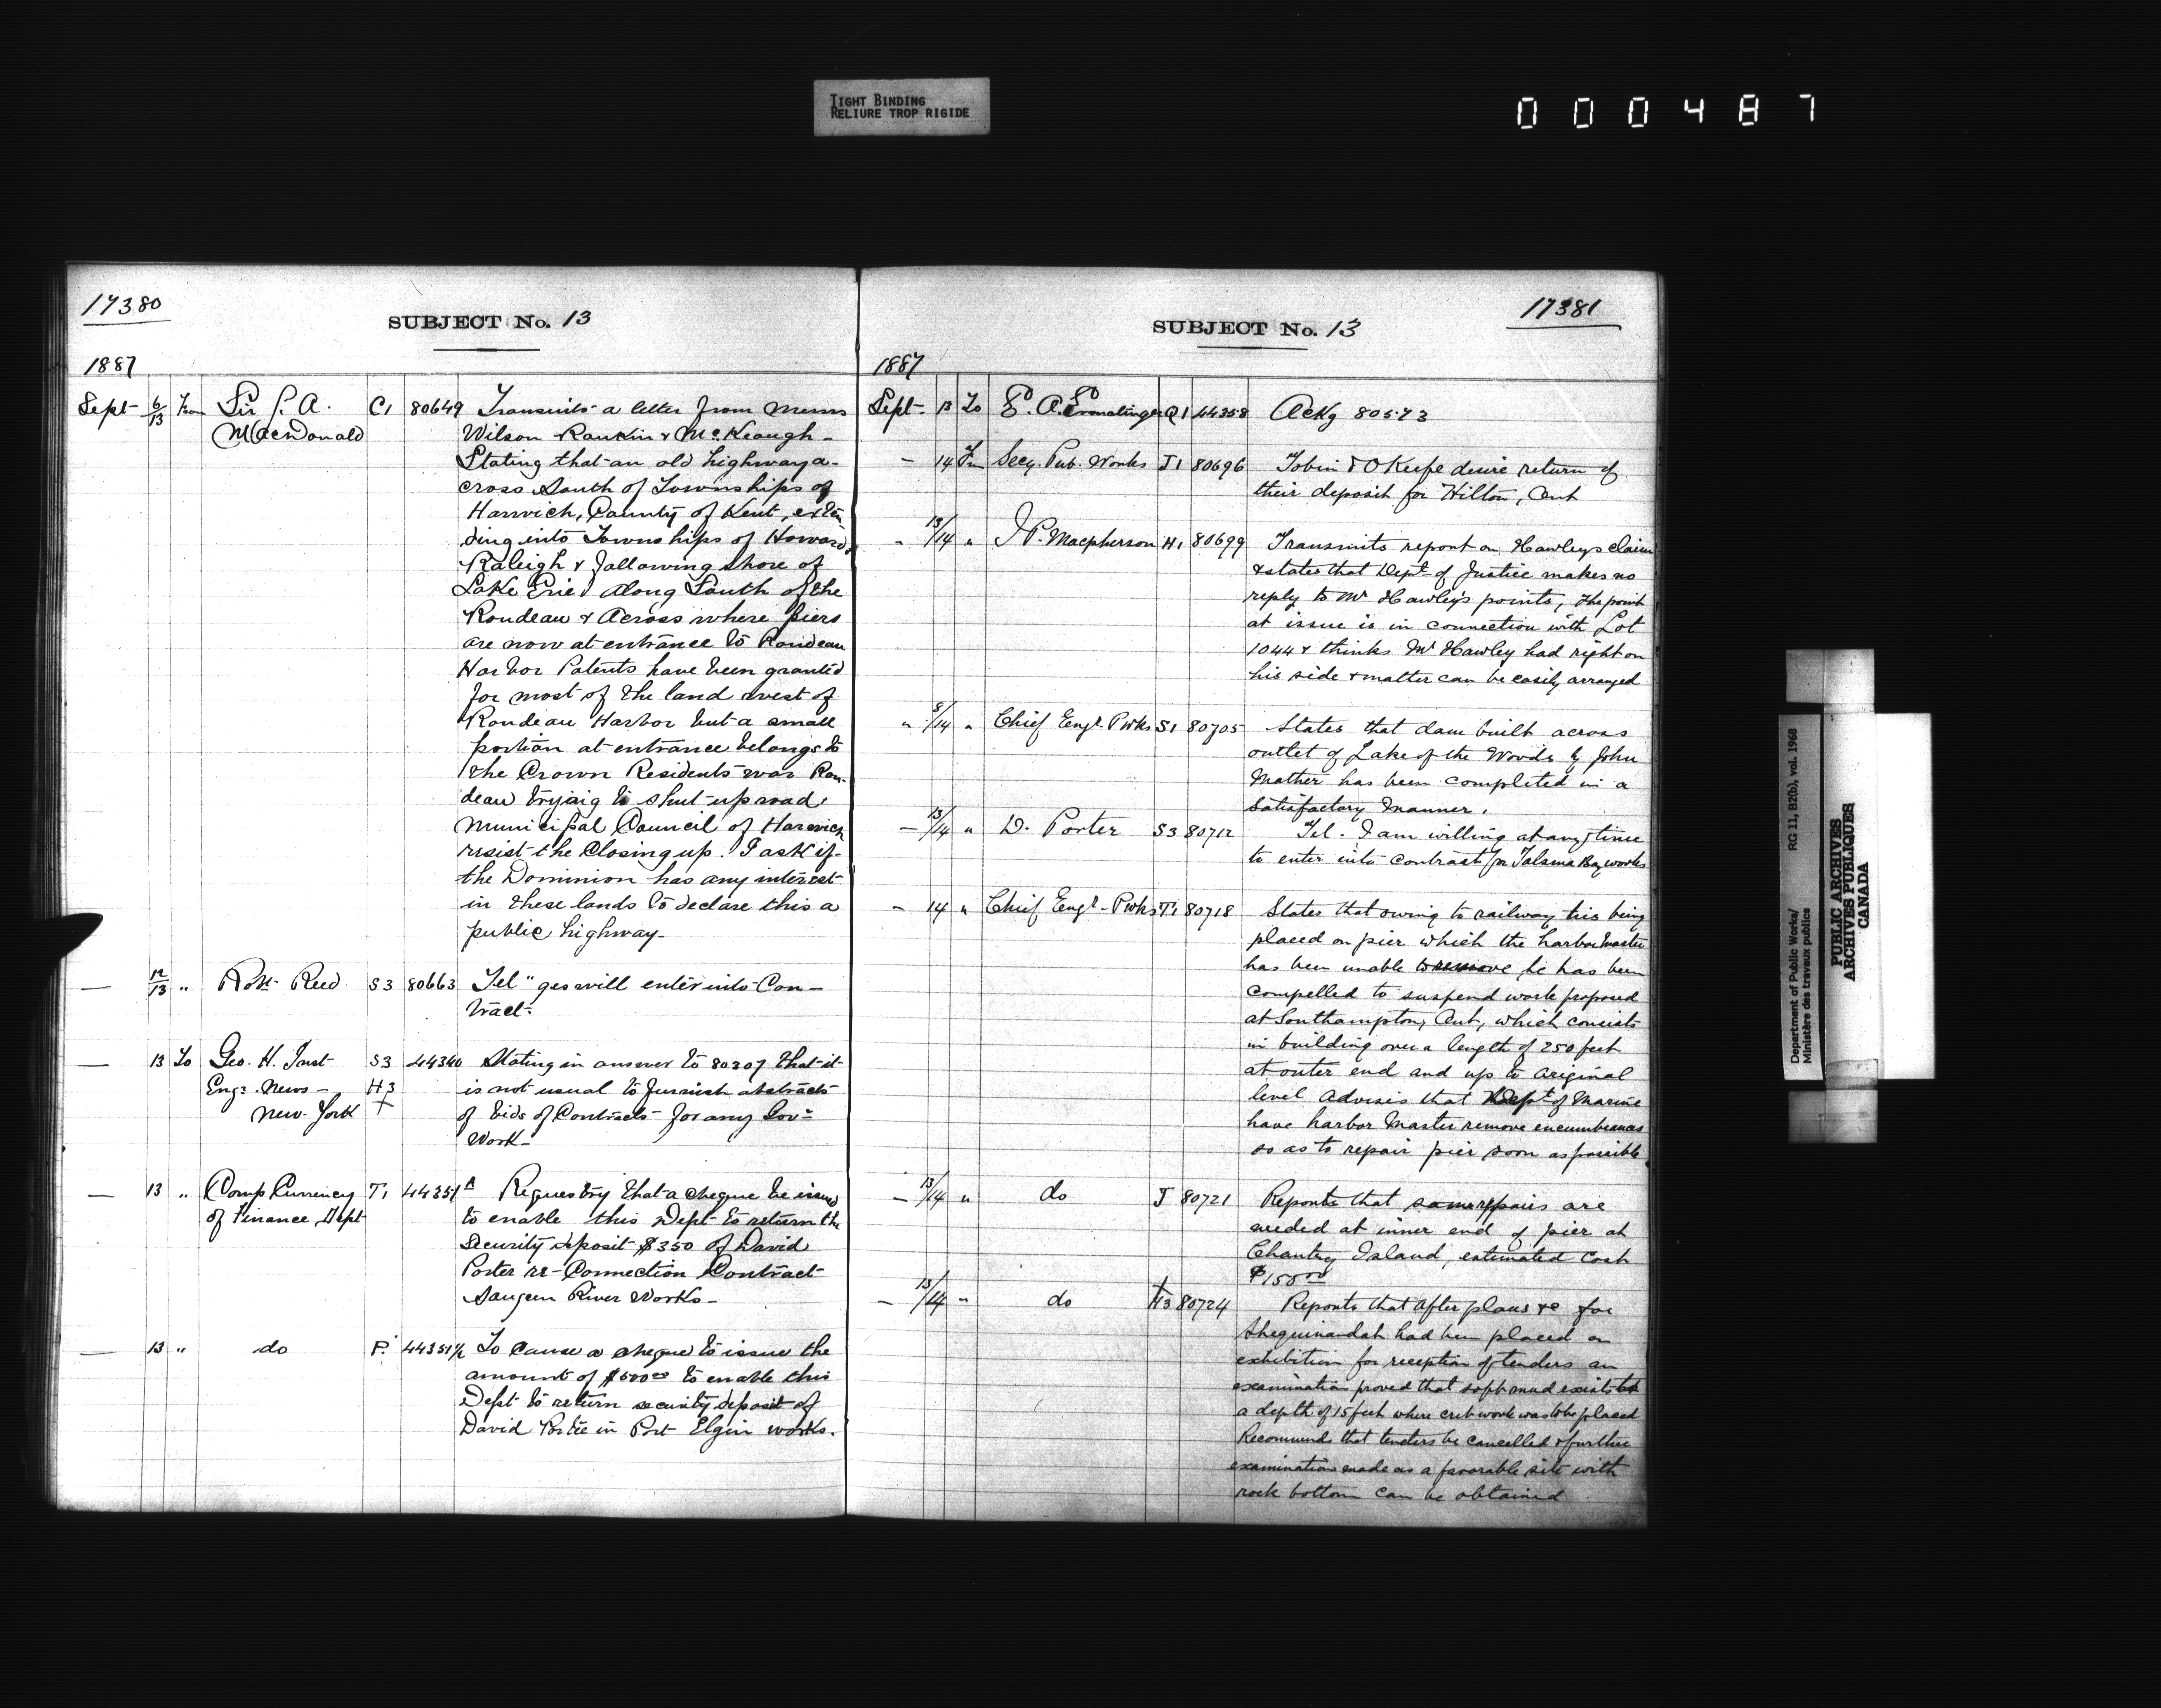 TIGHT BINDING
RELIURE TROP RIGIDE
000487
17380
SUBJECT No. 13
1887
Sept 6/13 From Sir J. A. MacDonald C1 80649 Transmits a letter from Messrs
Wilson Rankin & McKeough -
Stating that an old highway a-
cross South of Townships of
Harwich, County of Kent, exten
ding into Townships of Howard &
Raleigh & following shore of
Lake Erie along South of the
Rondeau & Across where piers
are now at entrance to Rondeau
Harbor Patents have been granted
for most of the land west of
Rondeau Harbor but a small
portion at entrance belongs to
the Crown Residents near Ron-
deau trying to shut up road.
Municipal Council of Harwich
resist the Closing up. I ask if
the Dominion has any interest
in these lands to declare this a
public highway -
— 12/13 " Robt. Reed S3 80663 Tel " yes will enter into Con-
tract.
— 13 To Geo. H. Frost S3 44340 Stating in answer to 80307 that it
Engr. News - H3 is not usual to furnish abstracts
New York + of bids of Contracts for any Gov=
Work -
— 13 " Comp Currency T1 44351A Requestng that a cheque be issued
of Finance Dept to enable this Dept to return the
Security deposit $350 of David
Porter re - Connection Contract
Saugeen River Works -
— 13 " do P. 44351½ To cause a cheque to issue the
amount of $500.00 to enable this
Dept to return security deposit of
David Porter in Port Elgin works.
17381
SUBJECT No. 13
1887
Sept. 13 To E. A. Ermatinger Q1 44358 Ackg 80573
— 14 Fm Secy. Pub. Works J1 80696 Tobin & OKeefe desire return of
their deposit for Hilton, Ont
" 13/14 " J P. Macpherson H1 80699 Transmits report on Hawleys claim
& states that Dept. of Justice makes no
reply to Mr Hawley's points, the point
at issue is in connection with Lot
1044 & thinks Mr Hawley had right on
his side & matter can be easily arranged
" 8/14 " Chief Engr. P Wks S1 80705 States that dam built across
outlet of Lake of the Woods by John
Mather has been completed in a
satisfactory manner.
— 13/14 " D. Porter S3 80712 Tel. I am willing at any time
to enter into contract for Tolsma Bay works
— 14 " Chief Engr. P Wks T1 80718 States that owing to railway ties being
placed on pier which the harbor Master
has been unable to remove he has been
compelled to suspend work proposed
at Southampton, Ont, which consists
in building over a length of 250 feet
at outer end and up to original
level Advises that Dept of Marine
have harbor Master remove encumbrances
so as to repair pier soon as possible
— 13/14 " do J 80721 Reports that some repairs are
needed at inner end of pier at
Chantry Island, estimated cost
$150.00
— 13/14 " do + H3 80724 Reports that after plans &c for
Sheguiandah had been placed on
exhibition for reception of tenders an
examination proved that soft mud exists to
a depth of 15 feet where crib work was to be placed
Recommends that tenders be cancelled & further
examination made as a favorable site with
rock bottom can be obtained
Department of Public Works/
Ministère des travaux publics
RG 11, B2(b), vol. 1968
PUBLIC ARCHIVES
ARCHIVES PUBLIQUES
CANADA